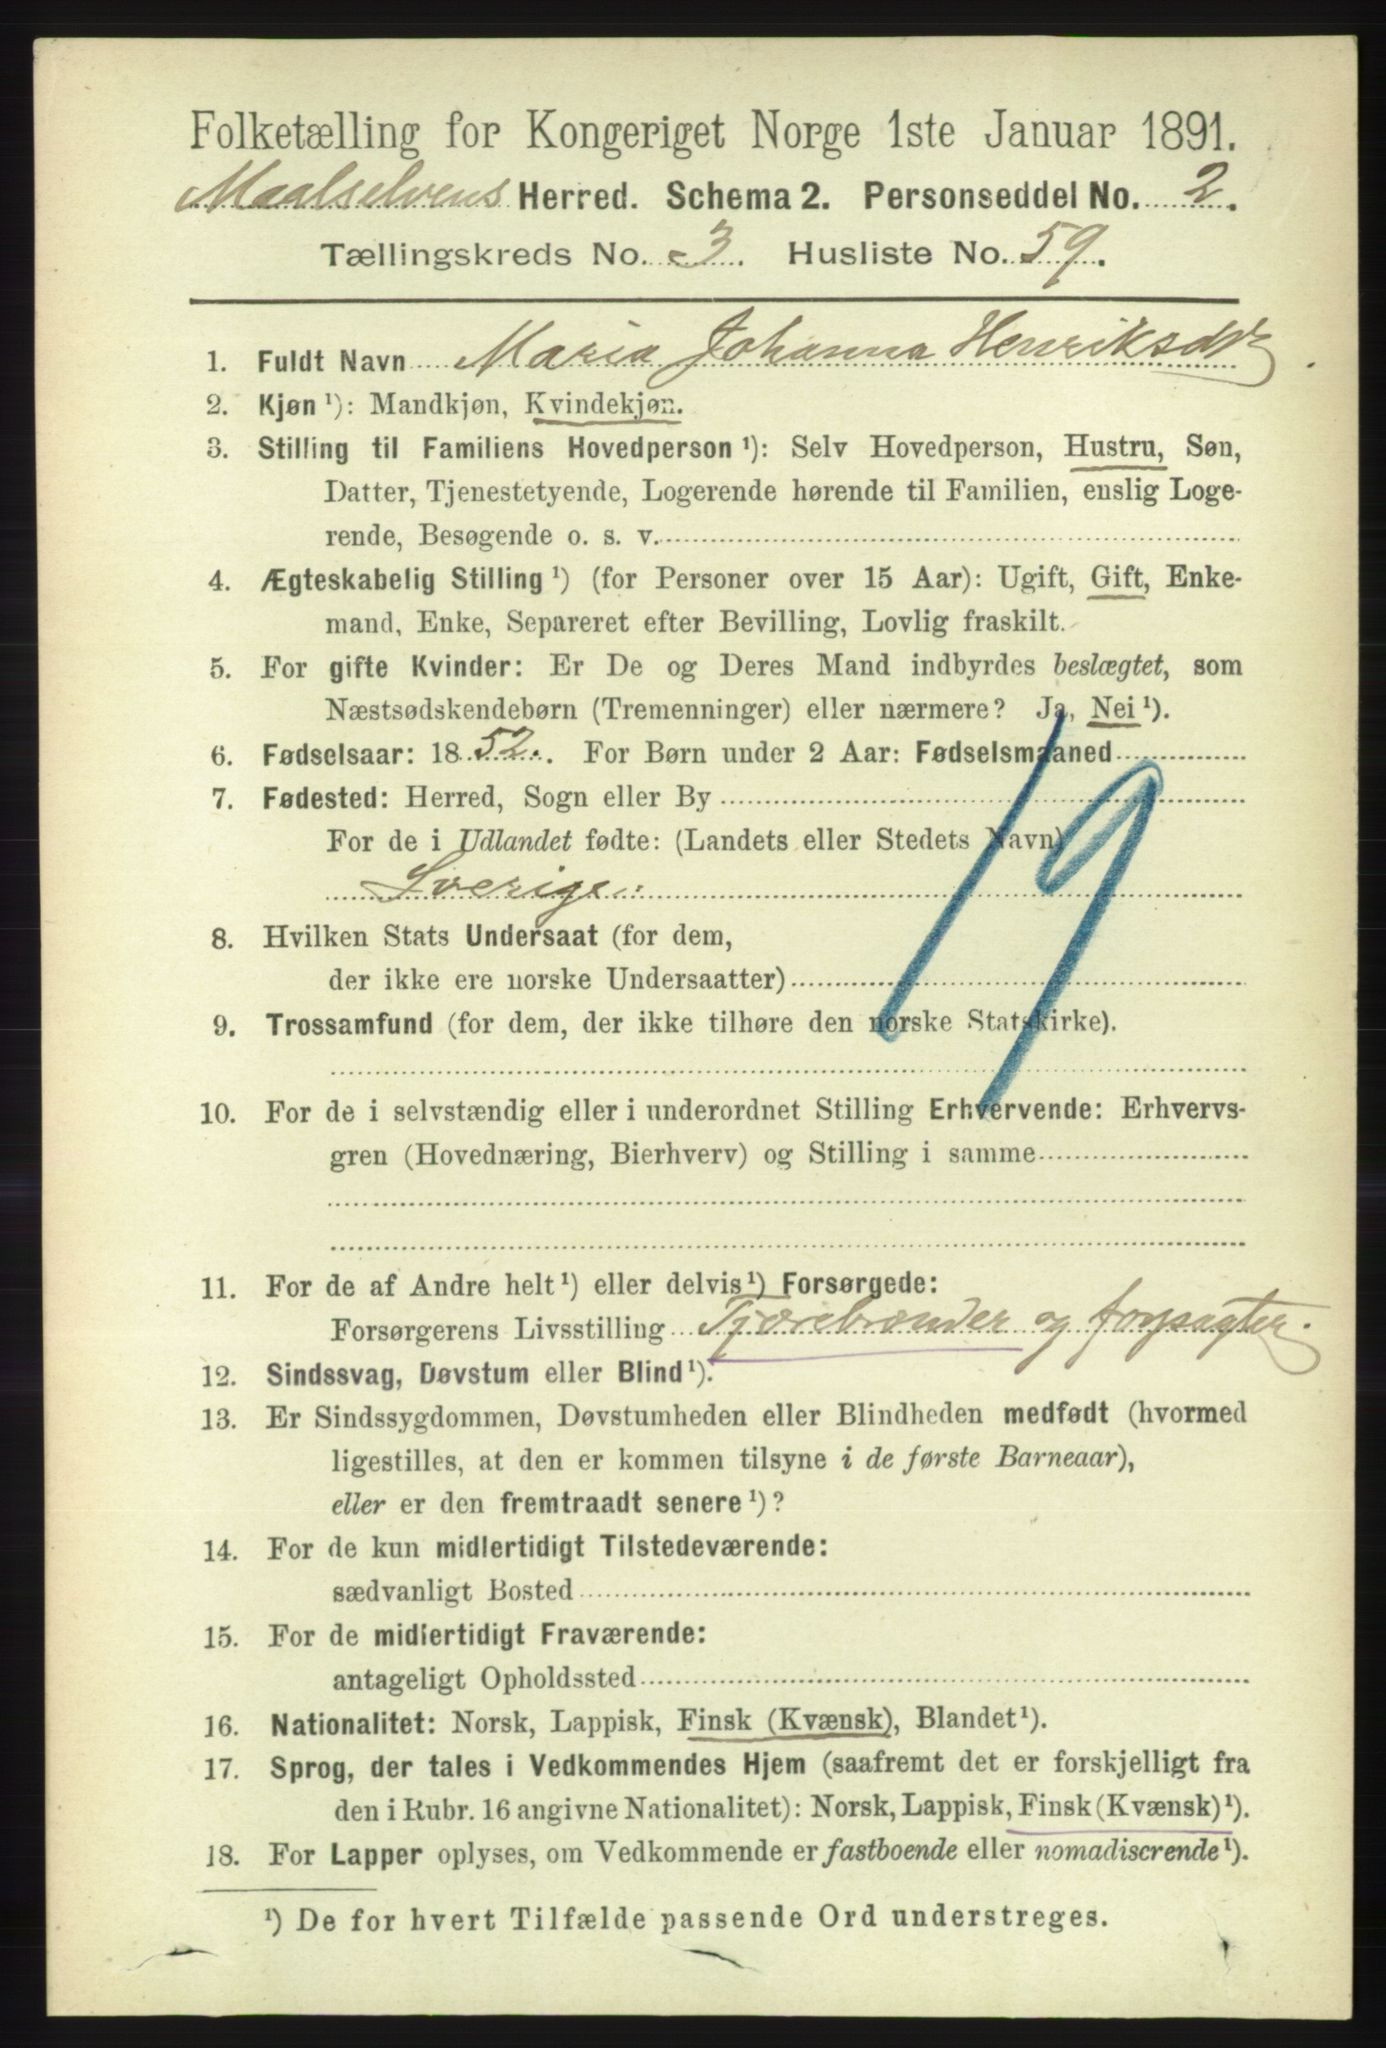 Folketælling for Kongeriget Norge 1ste Januar 1891.
Maalselvens Herred. Schema 2. Personseddel No. 2.
Tællingskreds No. 3. Husliste No. 59.
1. Fuldt Navn Maria Johanna Henriksdtr.
2. Kjøn ¹): Mandkjøn, Kvindekjøn.
3. Stilling til Familiens Hovedperson ¹): Selv Hovedperson, Hustru, Søn,
Datter, Tjenestetyende, Logerende hørende til Familien, enslig Loge-
rende, Besøgende o. s. v.
4. Ægteskabelig Stilling ¹) (for Personer over 15 Aar): Ugift, Gift, Enke-
mand, Enke, Separeret efter Bevilling, Lovlig fraskilt.
5. For gifte Kvinder: Er De og Deres Mand indbyrdes beslægtet, som
Næstsødskendebørn (Tremenninger) eller nærmere? Ja, Nei ¹).
6. Fødselsaar: 1852. For Børn under 2 Aar: Fødselsmaaned
7. Fødested: Herred, Sogn eller By
For de i Udlandet fødte: (Landets eller Stedets Navn)
Sverige.
19
8. Hvilken Stats Undersaat (for dem,
der ikke ere norske Undersaatter)
9. Trossamfund (for dem, der ikke tilhøre den norske Statskirke).
10. For de i selvstændig eller i underordnet Stilling Erhvervende: Erhvervs-
gren (Hovednæring, Bierhverv) og Stilling i samme
11. For de af Andre helt ¹) eller delvis ¹) Forsørgede:
Forsørgerens Livsstilling Tjærebrænder og forpagter.
12. Sindssvag, Døvstum eller Blind ¹).
13. Er Sindssygdommen, Døvstumheden eller Blindheden medfødt (hvormed
ligestilles, at den er kommen tilsyne i de første Barneaar),
eller er den fremtraadt senere ¹)?
14. For de kun midlertidigt Tilstedeværende:
sædvanligt Bosted
15. For de midlertidigt Fraværende:
antageligt Opholdssted
16. Nationalitet: Norsk, Lappisk, Finsk (Kvænsk), Blandet ¹).
17. Sprog, der tales i Vedkommendes Hjem (saafremt det er forskjelligt fra
den i Rubr. 16 angivne Nationalitet): Norsk, Lappisk, Finsk (Kvænsk) ¹).
18. For Lapper oplyses, om Vedkommende er fastboende eller nomadiscrende ¹).
¹) De for hvert Tilfælde passende Ord understreges.